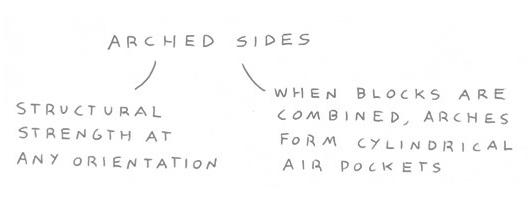 ARCHED SIDES
STRUCTURAL
STRENGTH AT
ANY ORIENTATION
WHEN BLOCKS ARE
COMBINED, ARCHES
FORM CYLINDRICAL
AIR POCKETS